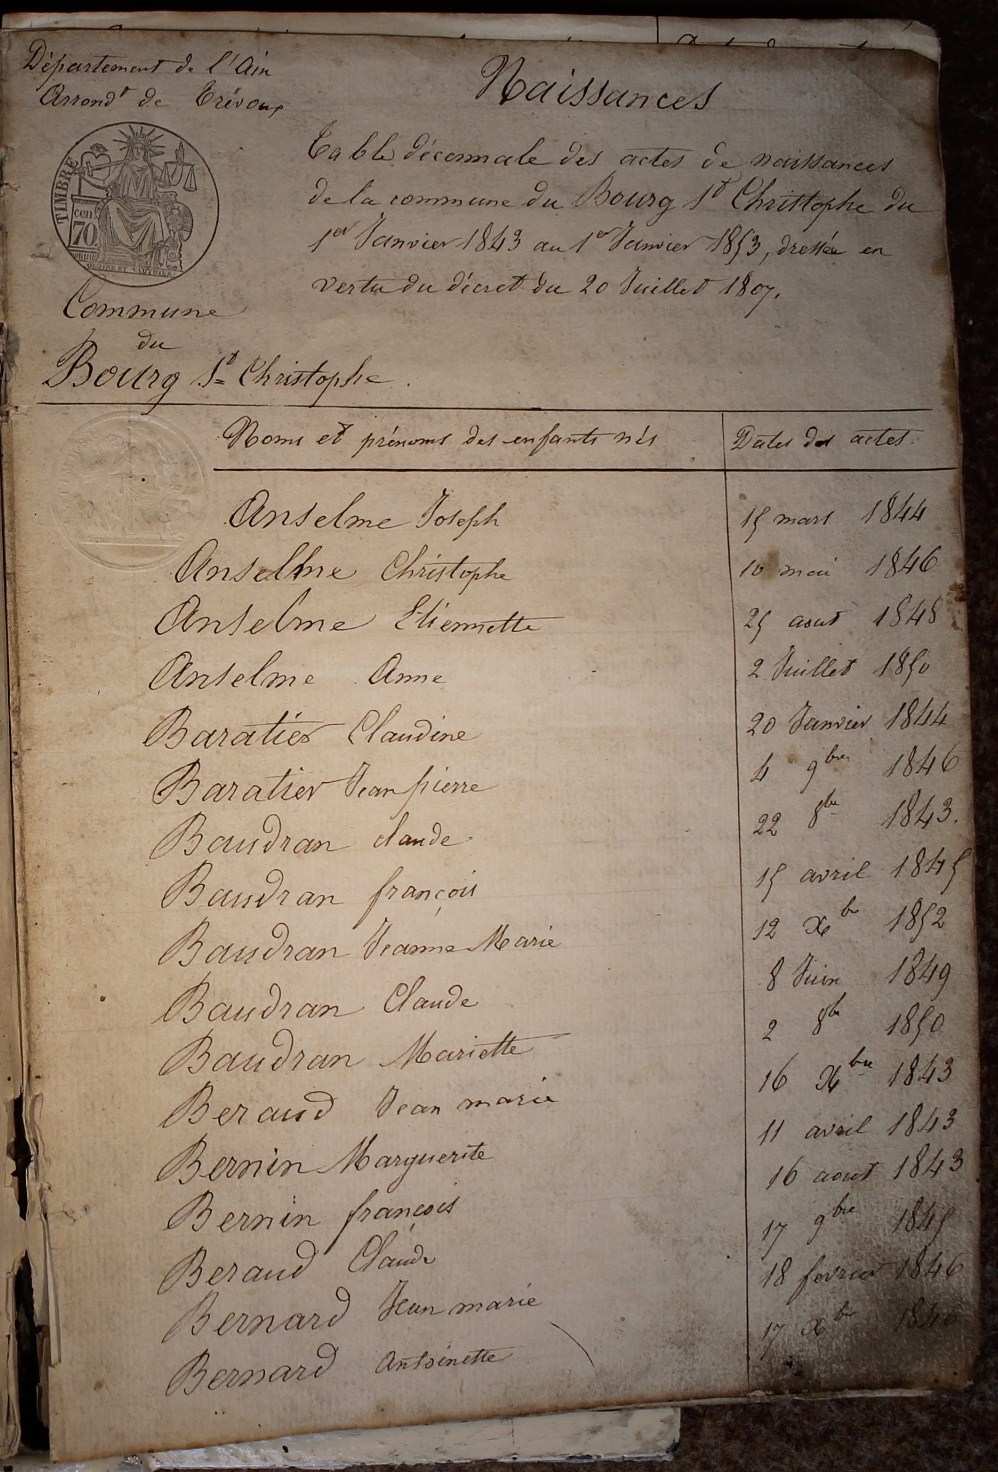 Département de l'Ain
Arrond^t de Trévoux
Naissances
TIMBRE
cen
70
Table décennale des actes de naissances
de la commune du Bourg S^t Christophe du
1^er Janvier 1843 au 1^er Janvier 1853, dressée en
vertu du décret du 20 Juillet 1807.
Commune
du
Bourg S^t Christophe.
Noms et prénoms des enfants nés Dates des actes.
Anselme Joseph 15 mars 1844
Anselme Christophe 10 mai 1846
Anselme Etiennette 25 aout 1848
Anselme Anne 2 Juillet 1850
Baratier Claudine 20 Janvier 1844
Baratier Jean pierre 4 9^bre 1846
Baudran claude 22 8^bre 1843.
Baudran françois 15 avril 1845
Baudran Jeanne Marie 12 X^bre 1852
Baudran Claude 8 Juin 1849
Baudran Mariette 2 8^bre 1850
Beraud Jean marie 16 X^bre 1843
Bernin Marguerite 11 avril 1843
Bernin françois 16 aout 1843
Beraud Claude 17 9^bre 1845
Bernard Jean marie 18 fevrier 1846
Bernard Antoinette 17 X^bre